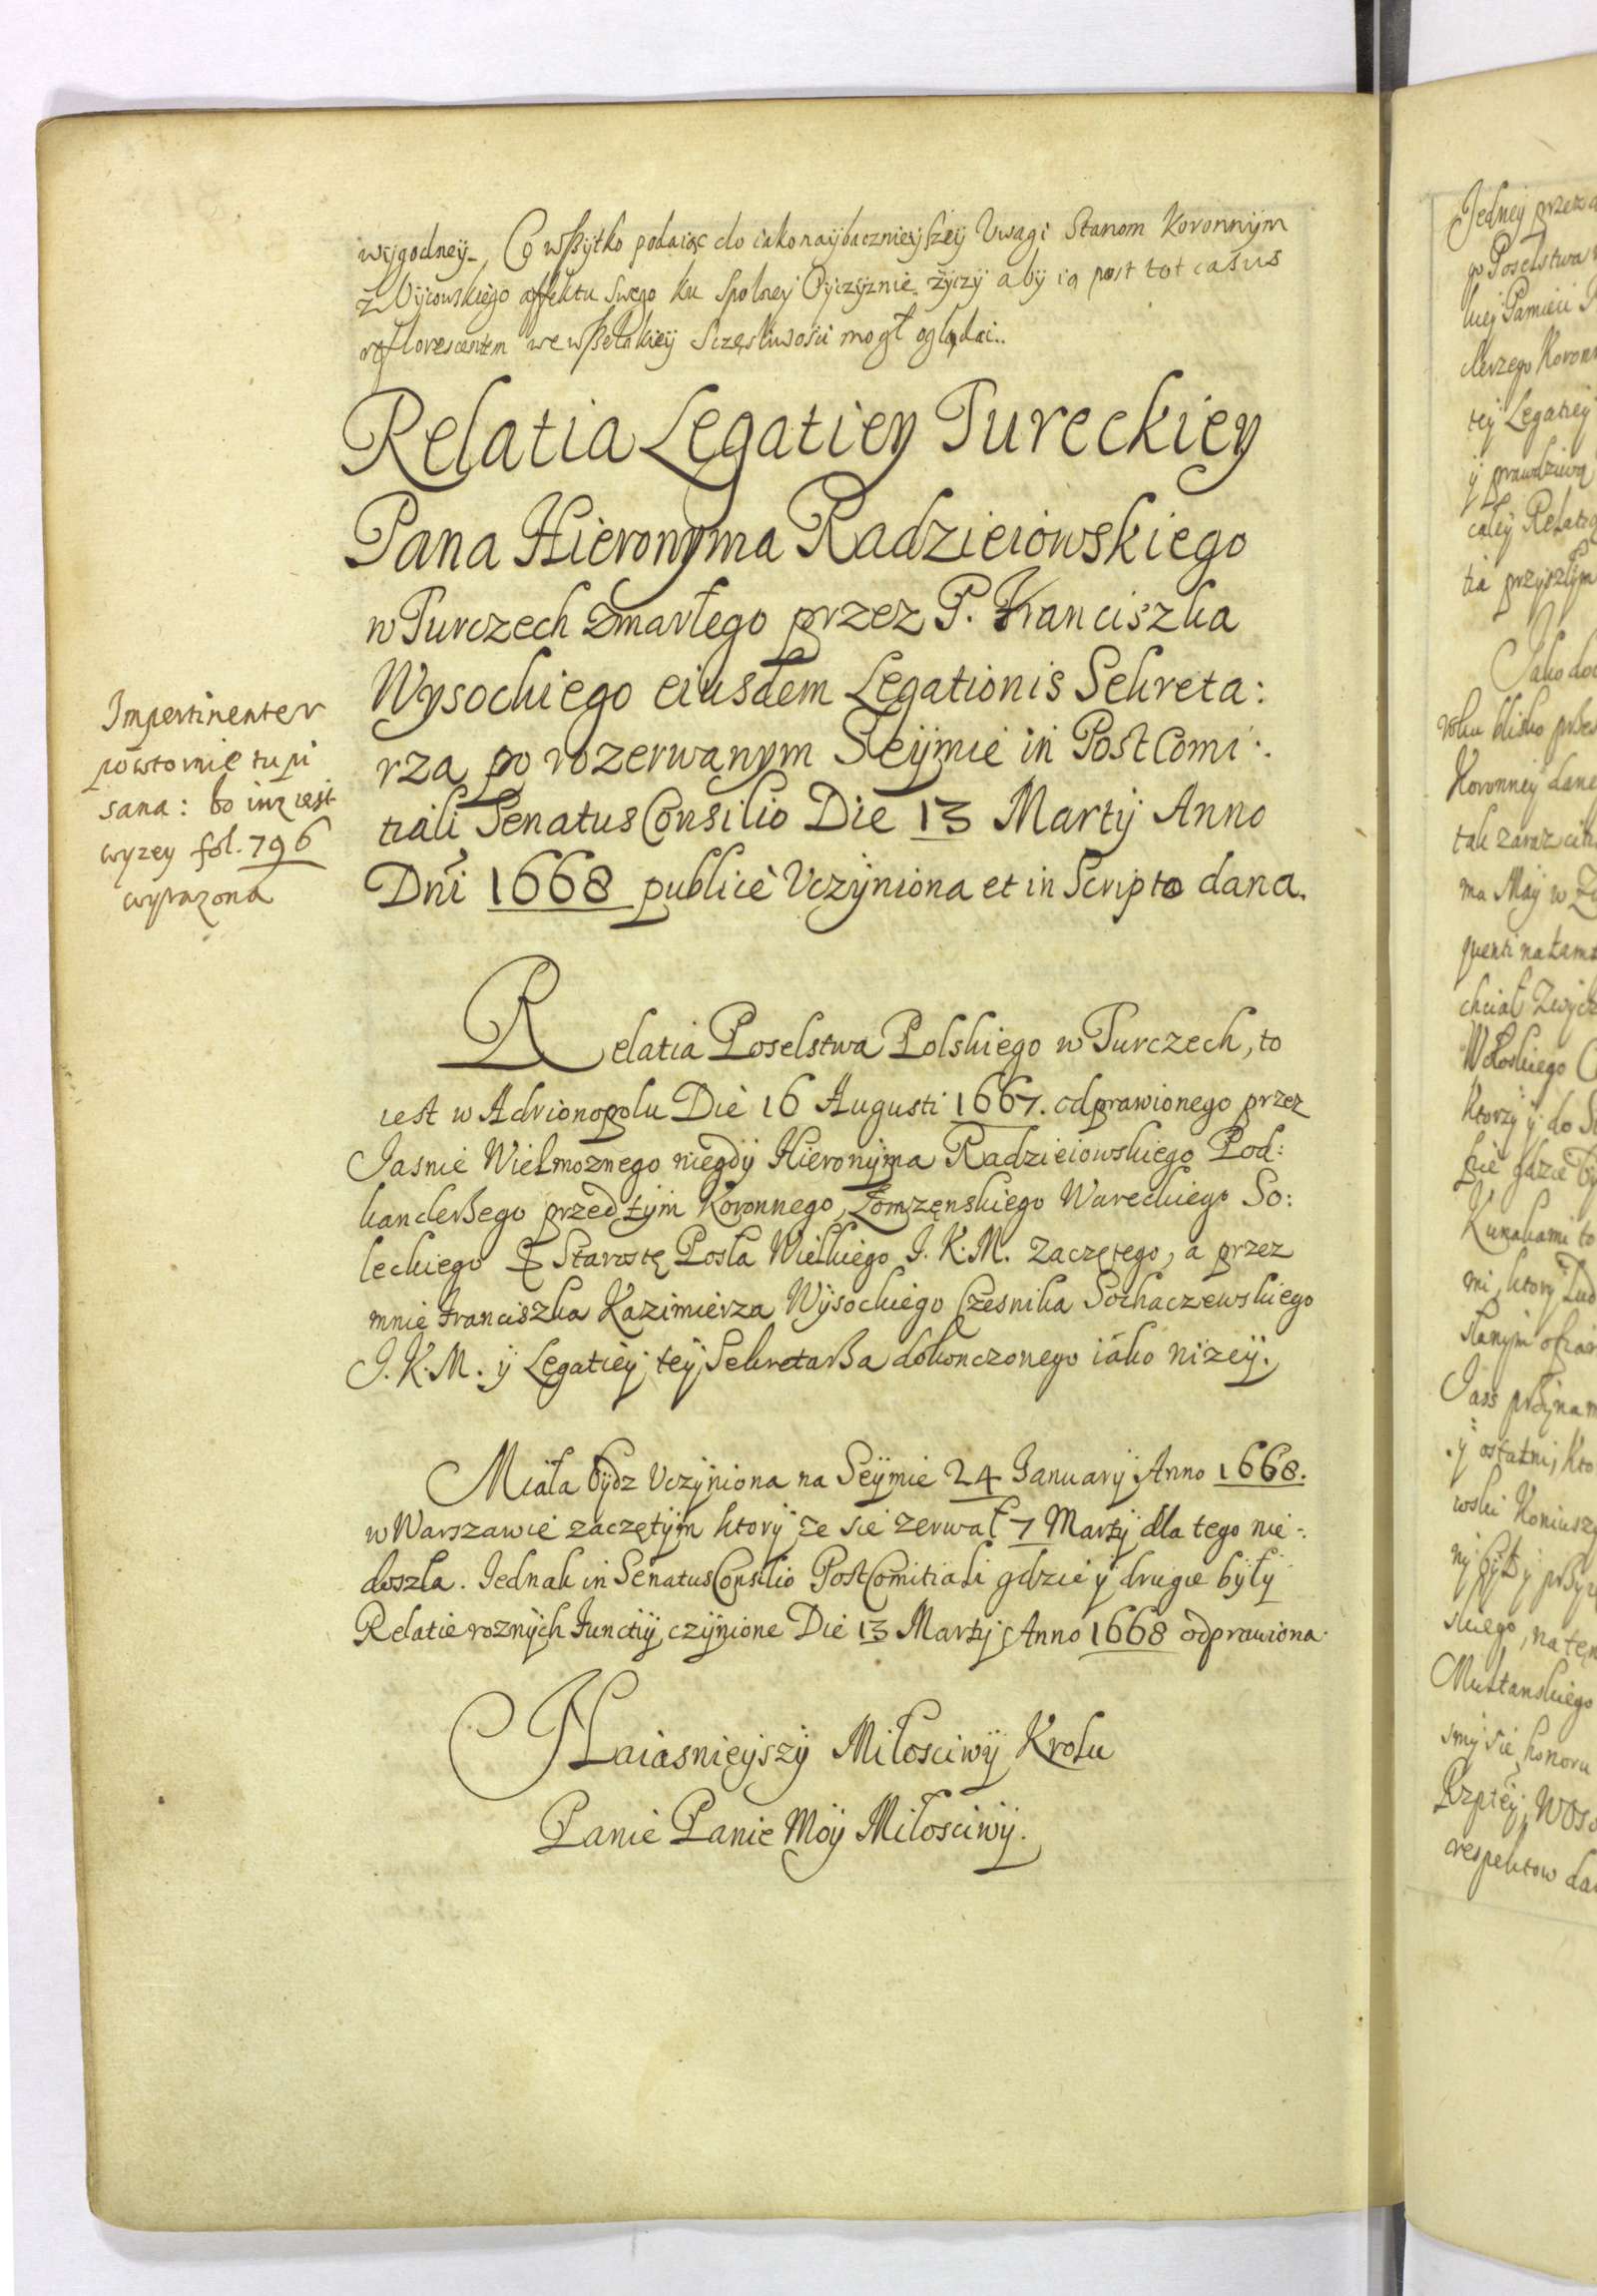 wygodney, Co wszytko podaiąc do iako naybacznieyszey Uwagi Stanom Koronnym
z Oycowskiego affektu swego ku Spolney Oyczyznie życzy aby ią post tot casus
reflorescentem we wszelakiey Sczęsliwosci mogł oglądac..
Relatia Legatiey Tureckiey
Pana Hieronyma Radzieiowskiego
w Turczech zmarłego przez P. Franciszka
Wysockiego eiusdem Legationis Sekreta:
rza po rozerwanym Seymie in Post Comi:
tiali Senatus Consilio Die 13 Martij Anno
Dni 1668 publicè Uczyniona et in Scripto dana.
Impertinenter
powtornie tu pi
sana: bo iuz iest
wyzey fol. 796
wyrazona
Relatia Poselstwa Polskiego w Turczech, to
iest w Adrionopolu Die 16 Augusti 1667. odprawionego przez
Jasnie Wielmoznego niegdy Hieronyma Radzieiowskiego Pod:
kanclerßego przed tym Koronnego, Łomzęnskiego Wareckiego So:
leckiego Starostę Posła Wielkiego J. K. M. Zaczętego, a przez
mnie Franciszka Kazimierza Wysockiego Czesnika Sochaczewskiego
J. K. M. y Legatiey tey Sekretarßa dokonczonego iako nizey.
Miała bydz Uczyniona na Seymie 24 Januarij Anno 1668.
w Warszawie zaczętym ktory ze sie zerwał 7 Martij dla tego nie:
doszła. Jednak in Senatus Consilio Post Comitiali gdzie y drugie były
Relatie roznych Functiy czynione Die 13 Martij Anno 1668 odprawiona.
Naiasnieyszy Miłosciwy Krolu
Panie Panie Moy Miłosciwy.
Jedney przez
go Poselstwa
kiey Pamieci
clerzego Koron
tey Legatiey
y prawdziwą
całey Relatią
tia przyszłym
Jako do
roku blisko przes
Koronney dane
tak zaraz
ma Maij w
quenti na tam
chciał Zwycz
Wołoskiego
Ktorzy y do
gdzie
Kunakami to
mi, ktory Lud
ofiar
Jass przyna
y ostatni, kto
wski Koniuszy
skiego, na ten
Multanskiego
smy sie honoru
Rzptey,
respektow da